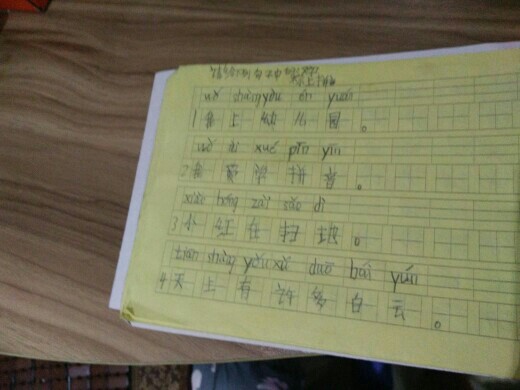 wǒ shàng yòu ér yuán
1 我 上 幼 儿 园 。
wǒ ài xué pīn yīn
2 我 爱 学 拼 音 。
xiǎo hóng zài sǎo dì
3 小 红 在 扫 地 。
tiān shàng yǒu xǔ duō bái yún
4 天 上 有 许 多 白 云 。